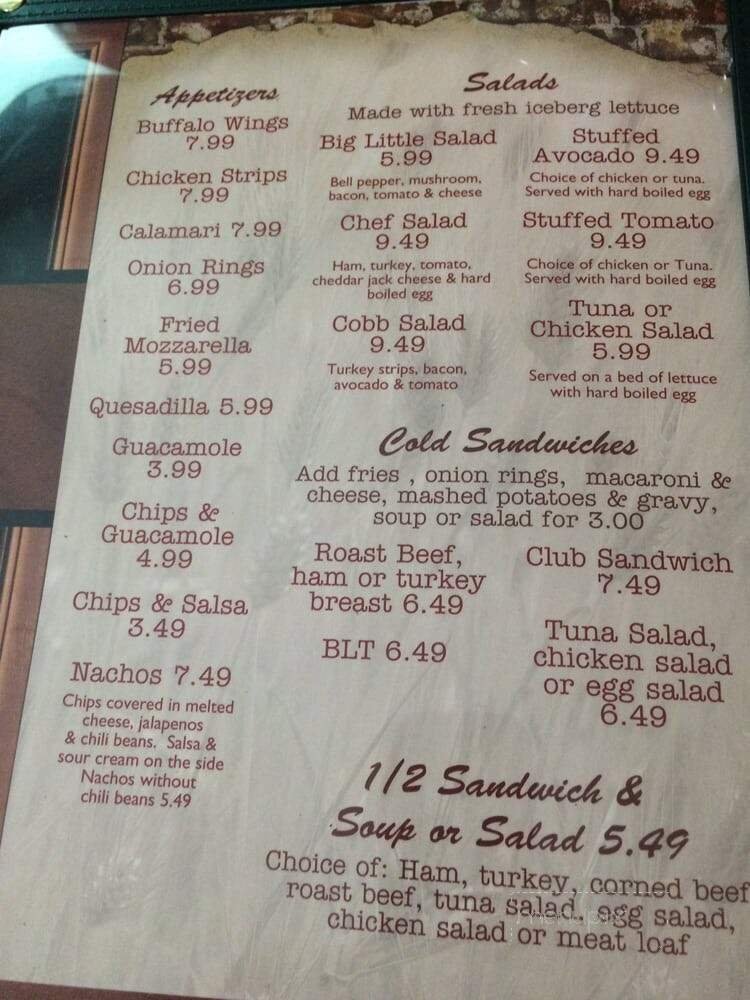 Appetizers
Buffalo Wings
7.99
Chicken Strips
7.99
Calamari 7.99
Onion Rings
6.99
Fried
Mozzarella
5.99
Quesadilla 5.99
Guacamole
3.99
Chips &
Guacamole
4.99
Chips & Salsa
3.49
Nachos 7.49
Chips covered in melted
cheese, jalapenos
& chili beans. Salsa &
sour cream on the side
Nachos without
chili beans 5.49
Salads
Made with fresh iceberg lettuce
Big Little Salad
5.99
Bell pepper, mushroom,
bacon, tomato & cheese
Chef Salad
9.49
Ham, turkey, tomato,
cheddar jack cheese & hard
boiled egg
Cobb Salad
9.49
Turkey strips, bacon,
avocado & tomato
Stuffed
Avocado 9.49
Choice of chicken or tuna.
Served with hard boiled egg
Stuffed Tomato
9.49
Choice of chicken or Tuna.
Served with hard boiled egg
Tuna or
Chicken Salad
5.99
Served on a bed of lettuce
with hard boiled egg
Cold Sandwiches
Add fries , onion rings, macaroni &
cheese, mashed potatoes & gravy,
soup or salad for 3.00
Roast Beef,
ham or turkey
breast 6.49
BLT 6.49
Club Sandwich
7.49
Tuna Salad,
chicken salad
or egg salad
6.49
1/2 Sandwich &
Soup or Salad 5.49
Choice of: Ham, turkey, corned beef
roast beef, tuna salad, egg salad,
chicken salad or meat loaf